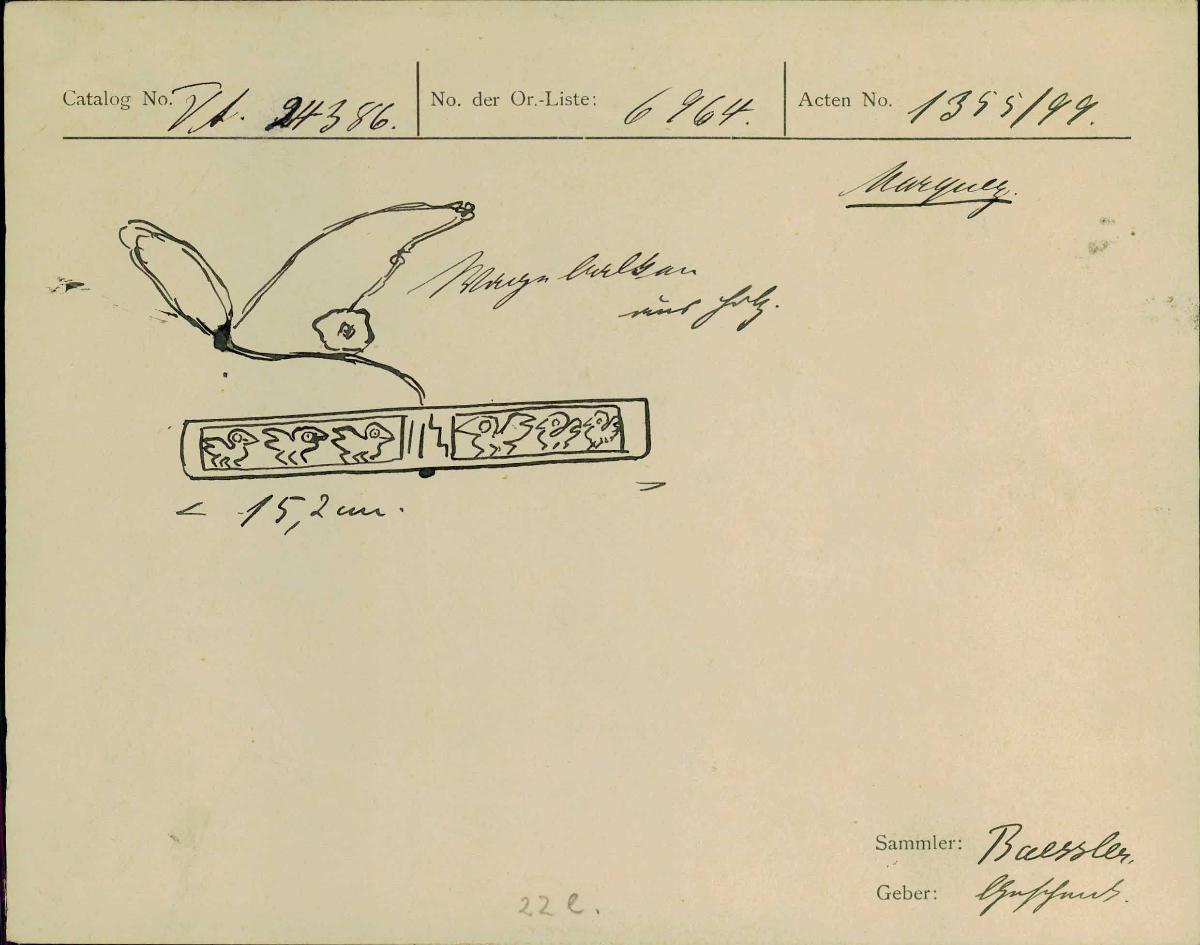 Catalog No. VA. 24386.
No. der Or.-Liste: 6964.
Acten No. 1355/99.
Marquez.
Wagebalken
aus Holz.
< 15,2 cm. >
Sammler: Baessler.
Geber: Geschenk.
22 l.